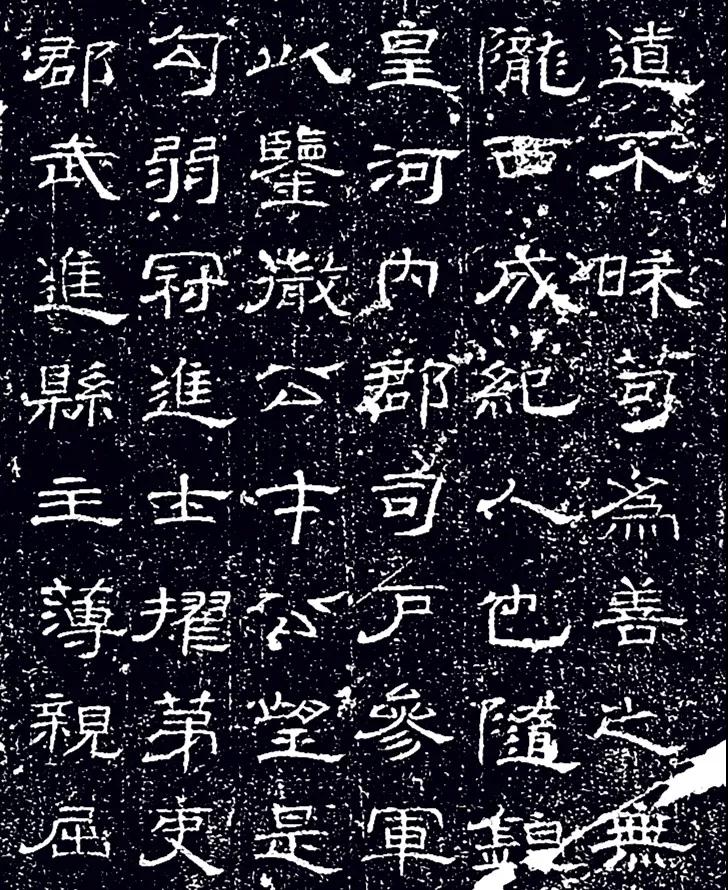 道不昧苟為善之無
隴西成紀人也隨鎮
皇河内郡司戶參軍
以鑒徹公才公望是
勾弱冠進士擢苐吏
郡武進縣主薄親屈